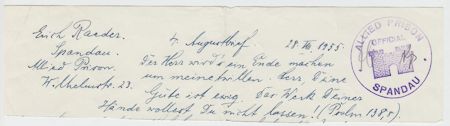 Erich Raeder.
Spandau.
Allied Prison
Wilhelmstr. 23.
4. Augustbrief. 28. VII. 1955.
Der Herr wird's ein Ende machen
um meinetwillen. Herr, Deine
Güte ist ewig. Das Werk Deiner
Hände wollest Du nicht lassen! (Psalm 138,8)
ALLIED PRISON
OFFICIAL
SPANDAU